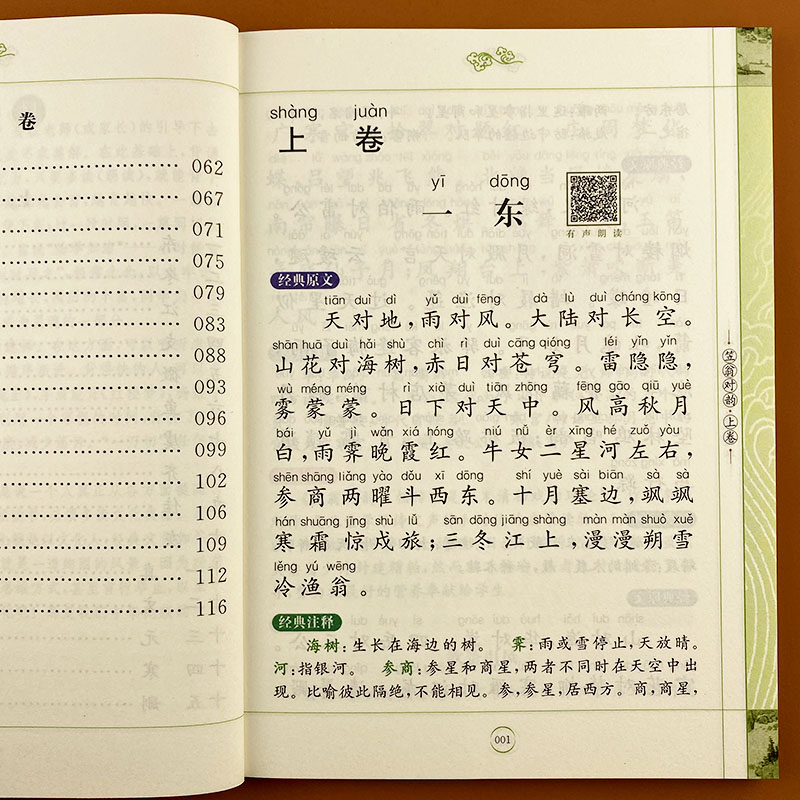 卷
062
067
071
075
079
083
088
093
096
099
102
106
109
112
116
shàng juàn
上 卷
yī dōng
一 东
有声朗读
经典原文
tiān duì dì yǔ duì fēng dà lù duì cháng kōng
天对地，雨对风。大陆对长空。
shān huā duì hǎi shù chì rì duì cāng qióng léi yǐn yǐn
山花对海树，赤日对苍穹。雷隐隐，
wù méng méng rì xià duì tiān zhōng fēng gāo qiū yuè
雾蒙蒙。日下对天中。风高秋月
bái yǔ jì wǎn xiá hóng niú nǚ èr xīng hé zuǒ yòu
白，雨霁晚霞红。牛女二星河左右，
shēn shāng liǎng yào dǒu xī dōng shí yuè sài biān sà sà
参商两曜斗西东。十月塞边，飒飒
hán shuāng jīng shù lǚ sān dōng jiāng shàng màn màn shuò xuě
寒霜惊戍旅；三冬江上，漫漫朔雪
lěng yú wēng
冷渔翁。
经典注释
海树：生长在海边的树。 霁：雨或雪停止，天放晴。
河：指银河。 参商：参星和商星，两者不同时在天空中出
现。比喻彼此隔绝，不能相见。参，参星，居西方。商，商星，
001
笠翁对韵·上卷